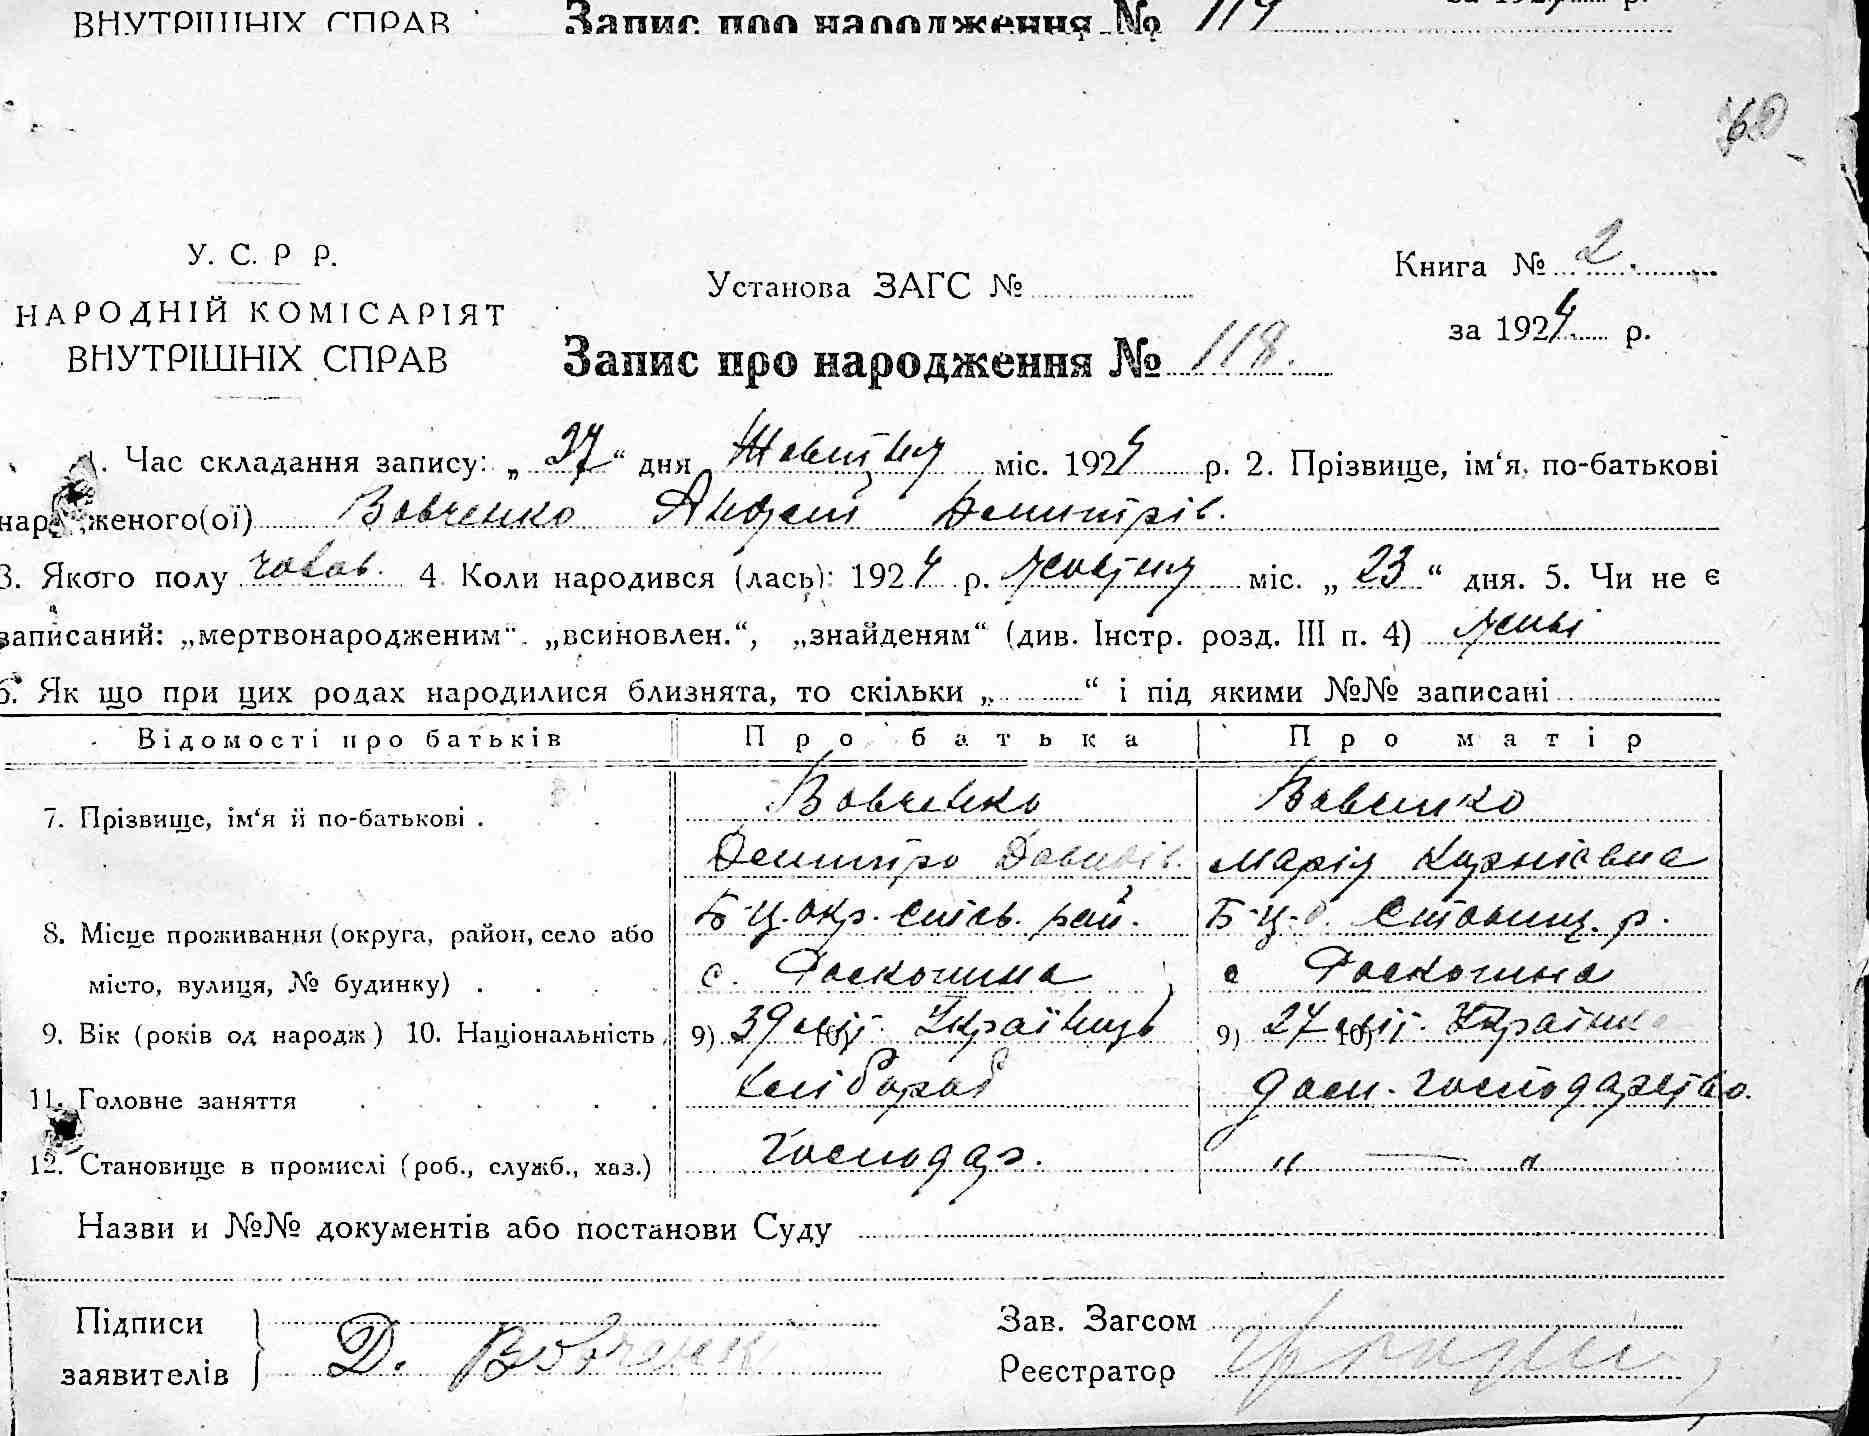 ВНУТРІШНІХ СПРАВ Запис про народження № 119 за 1924 р.
60
У. С. Р Р.
НАРОДНІЙ КОМІСАРІЯТ
ВНУТРІШНІХ СПРАВ
Установа ЗАГС №
Книга № 2.
за 1924 р.
Запис про народження № 118.
1. Час складання запису: „ 27 “ дня Жовтня міс. 1924 р. 2. Прізвище, ім‘я, по-батькові
народженого(ої) Вовченко Андрей Демитрів.
3. Якого полу чолов. 4. Коли народився (лась): 1924 р. Жовтня міс. „ 23 “ дня. 5. Чи не є
записаний: „мертвонародженим“. „всиновлен.“, „знайденям“ (див. Інстр. розд. III п. 4) живі
6. Як що при цих родах народилися близнята, то скільки „ “ і під якими №№ записані
Відомості про батьків Про батька Про матір
7. Прізвище, ім‘я й по-батькові . Вовченко Вовченко
Демитро Давидів. Марія Корніевна
8. Місце проживання (округа, район, село або Б-Ц. окр. Ст. рай. Б-Ц. Ставищ. р.
місто, вулиця, № будинку) . с. Роскошна с Роскошна
9. Вік (років од народж) 10. Національність 9) 39 літ. 10) Українець 9) 27 літ. 10) Українка
11. Головне заняття Хлібороб дом. господарство.
12. Становище в промислі (роб., служб., хаз.) господар. „ — “
Назви и №№ документів або постанови Суду
Підписи
заявителів } Д. Вовченко
Зав. Загсом
Реєстратор